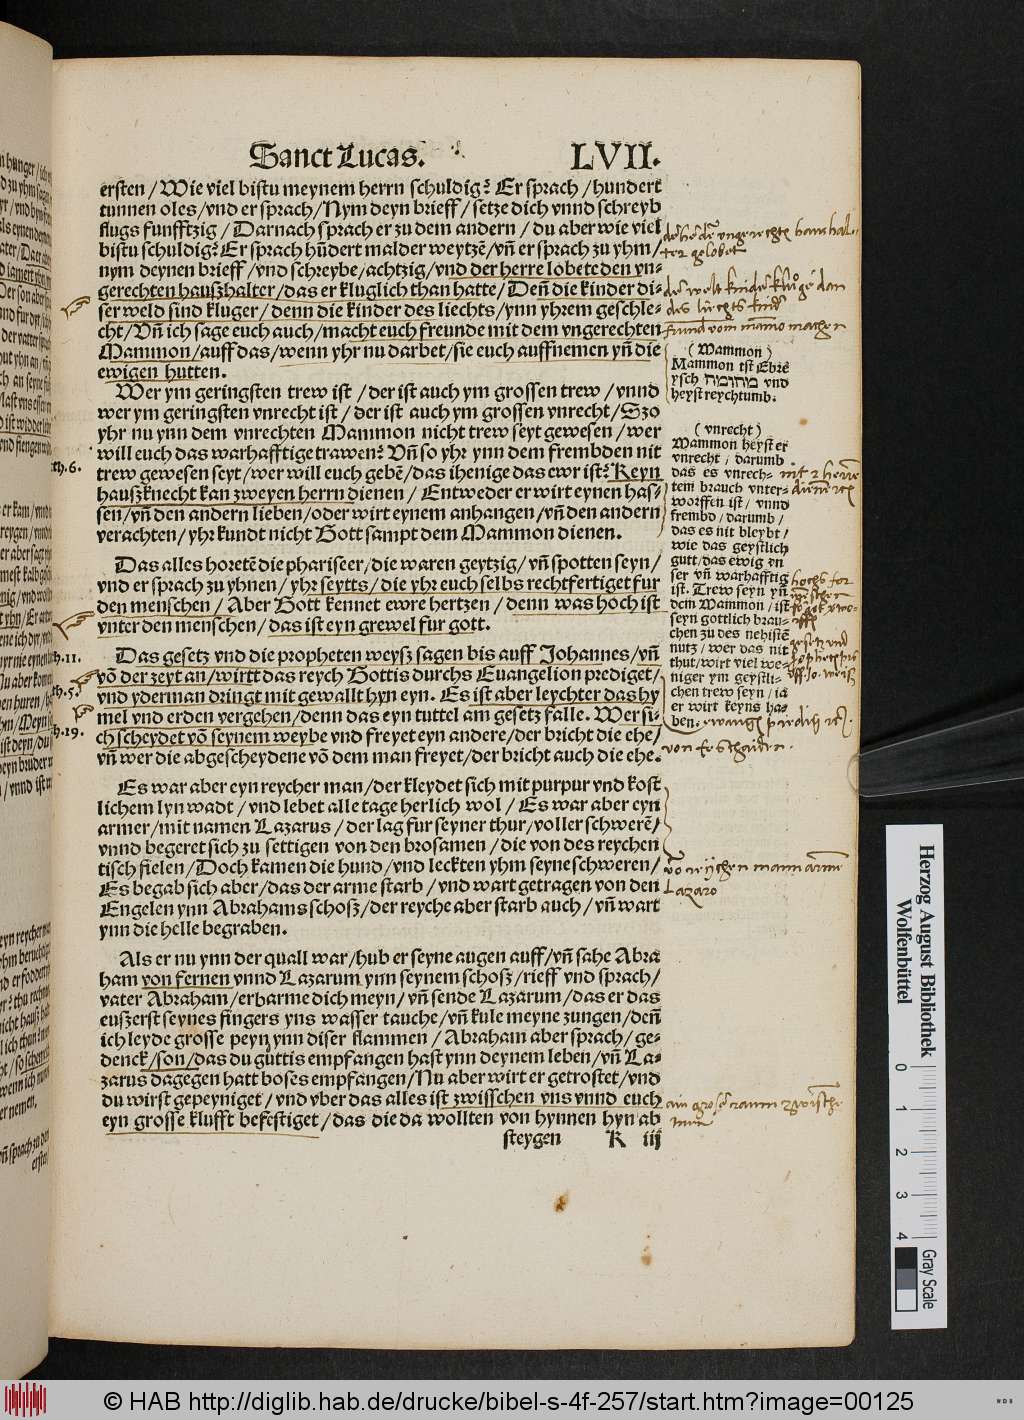 Sanct Lucas. LVII.
ersten / Wie viel bistu meynem herrn schuldig? Er sprach / hundert
tunnen oles / vnd er sprach / Nym deyn brieff / setze dich vnnd schreyb
flugs funfftzig / Darnach sprach er zu dem andern / du aber wie viel
bistu schuldig? Er sprach hũdert malder weytzẽ / vñ er sprach zu yhm /
nym deynen brieff / vnd schreybe / achtzig / vnd der herre lobete den vn-
gerechten haußhalter / das er kluglich than hatte / Deñ die kinder di-
ser weld sind kluger / denn die kinder des liechts / ynn yhrem geschle-
cht / Vñ ich sage euch auch / macht euch freunde mit dem vngerechten
Mammon / auff das / wenn yhr nu darbet / sie euch auffnemen yñ die
ewigen hutten.
Wer ym geringsten trew ist / der ist auch ym grossen trew / vnnd
wer ym geringsten vnrecht ist / der ist auch ym grossen vnrecht / Szo
yhr nu ynn dem vnrechten Mammon nicht trew seyt gewesen / wer
will euch das warhafftige trawen? Vñ so yhr ynn dem frembden nit
trew gewesen seyt / wer will euch gebẽ / das ihenige das ewr ist? Keyn
haußknecht kan zweyen herrn dienen / Entweder er wirt eynen has-
sen / vñ den andern lieben / oder wirt eynem anhangen / vñ den andern
verachten / yhr kundt nicht Gott sampt dem Mammon dienen.
Das alles horetẽ die phariseer / die waren geytzig / vñ spotten seyn /
vnd er sprach zu yhnen / yhr seytts / die yhr euch selbs rechtfertiget fur
den menschen / Aber Gott kennet ewre hertzen / denn was hoch ist
vnter den menschen / das ist eyn grewel fur gott.
Das gesetz vnd die propheten weysz sagen bis auff Johannes / vñ
võ der zeyt an / wirtt das reych Gottis durchs Euangelion prediget /
vnd yderman dringt mit gewallt hyn eyn. Es ist aber leychter das hy
mel vnd erden vergehen / denn das eyn tuttel am gesetz falle. Wer si-
ch scheydet võ seynem weybe vnd freyet eyn andere / der bricht die ehe /
vñ wer die abgescheydene võ dem man freyet / der bricht auch die ehe.
Es war aber eyn reycher man / der kleydet sich mit purpur vnd kost
lichem lyn wadt / vnd lebet alle tage herlich wol / Es war aber eyn
armer / mit namen Lazarus / der lag fur seyner thur / voller schwerẽ /
vnnd begeret sich zu settigen von den brosamen / die von des reychen
tisch fielen / Doch kamen die hund / vnd leckten yhm seyne schweren /
Es begab sich aber / das der arme starb / vnd wart getragen von den
Engelen ynn Abrahams schoß / der reyche aber starb auch / vñ wart
ynn die helle begraben.
Als er nu ynn der quall war / hub er seyne augen auff / vñ sahe Abra
ham von fernen vnnd Lazarum ynn seynem schoß / rieff vnd sprach /
vater Abraham / erbarme dich meyn / vñ sende Lazarum / das er das
euszerst seynes fingers yns wasser tauche / vñ kule meyne zungen / deñ
ich leyde grosse peyn ynn diser flammen / Abraham aber sprach / ge-
denck / son / das du guttis empfangen hast ynn deynem leben / vñ La-
zarus dagegen hatt boses empfangen / Nu aber wirt er getrostet / vnd
du wirst gepeyniget / vnd vber das alles ist zwisschen vns vnnd euch
eyn grosse klufft befestiget / das die da wollten von hynnen hyn ab
steygen K iij
(Mammon)
Mammon ist Ebre
ysch vnd
heyst reychtumb.
(vnrecht)
Mammon heyst er
vnrecht / darumb
das es vnrech-
tem brauch vnter-
worffen ist / vnnd
frembd / darumb /
das es nit bleybt /
wie das geystlich
gutt / das ewig vn
ser vñ warhafftig
ist. Trew seyn yñ
dem Mammon / ist
seyn gottlich brau-
chen zu des nehistẽ
nutz / wer das nit
thut / wirt viel we-
niger ym geystli-
chen trew seyn / ia
er wirt keyns ha-
ben.
von eschaiden.
Lazaro
th. 6.
th. 11.
th. 5.
th. 19.
Herzog August Bibliothek
Wolfenbüttel
0 1 2 3 4
Gray Scale
© HAB http://diglib.hab.de/drucke/bibel-s-4f-257/start.htm?image=00125